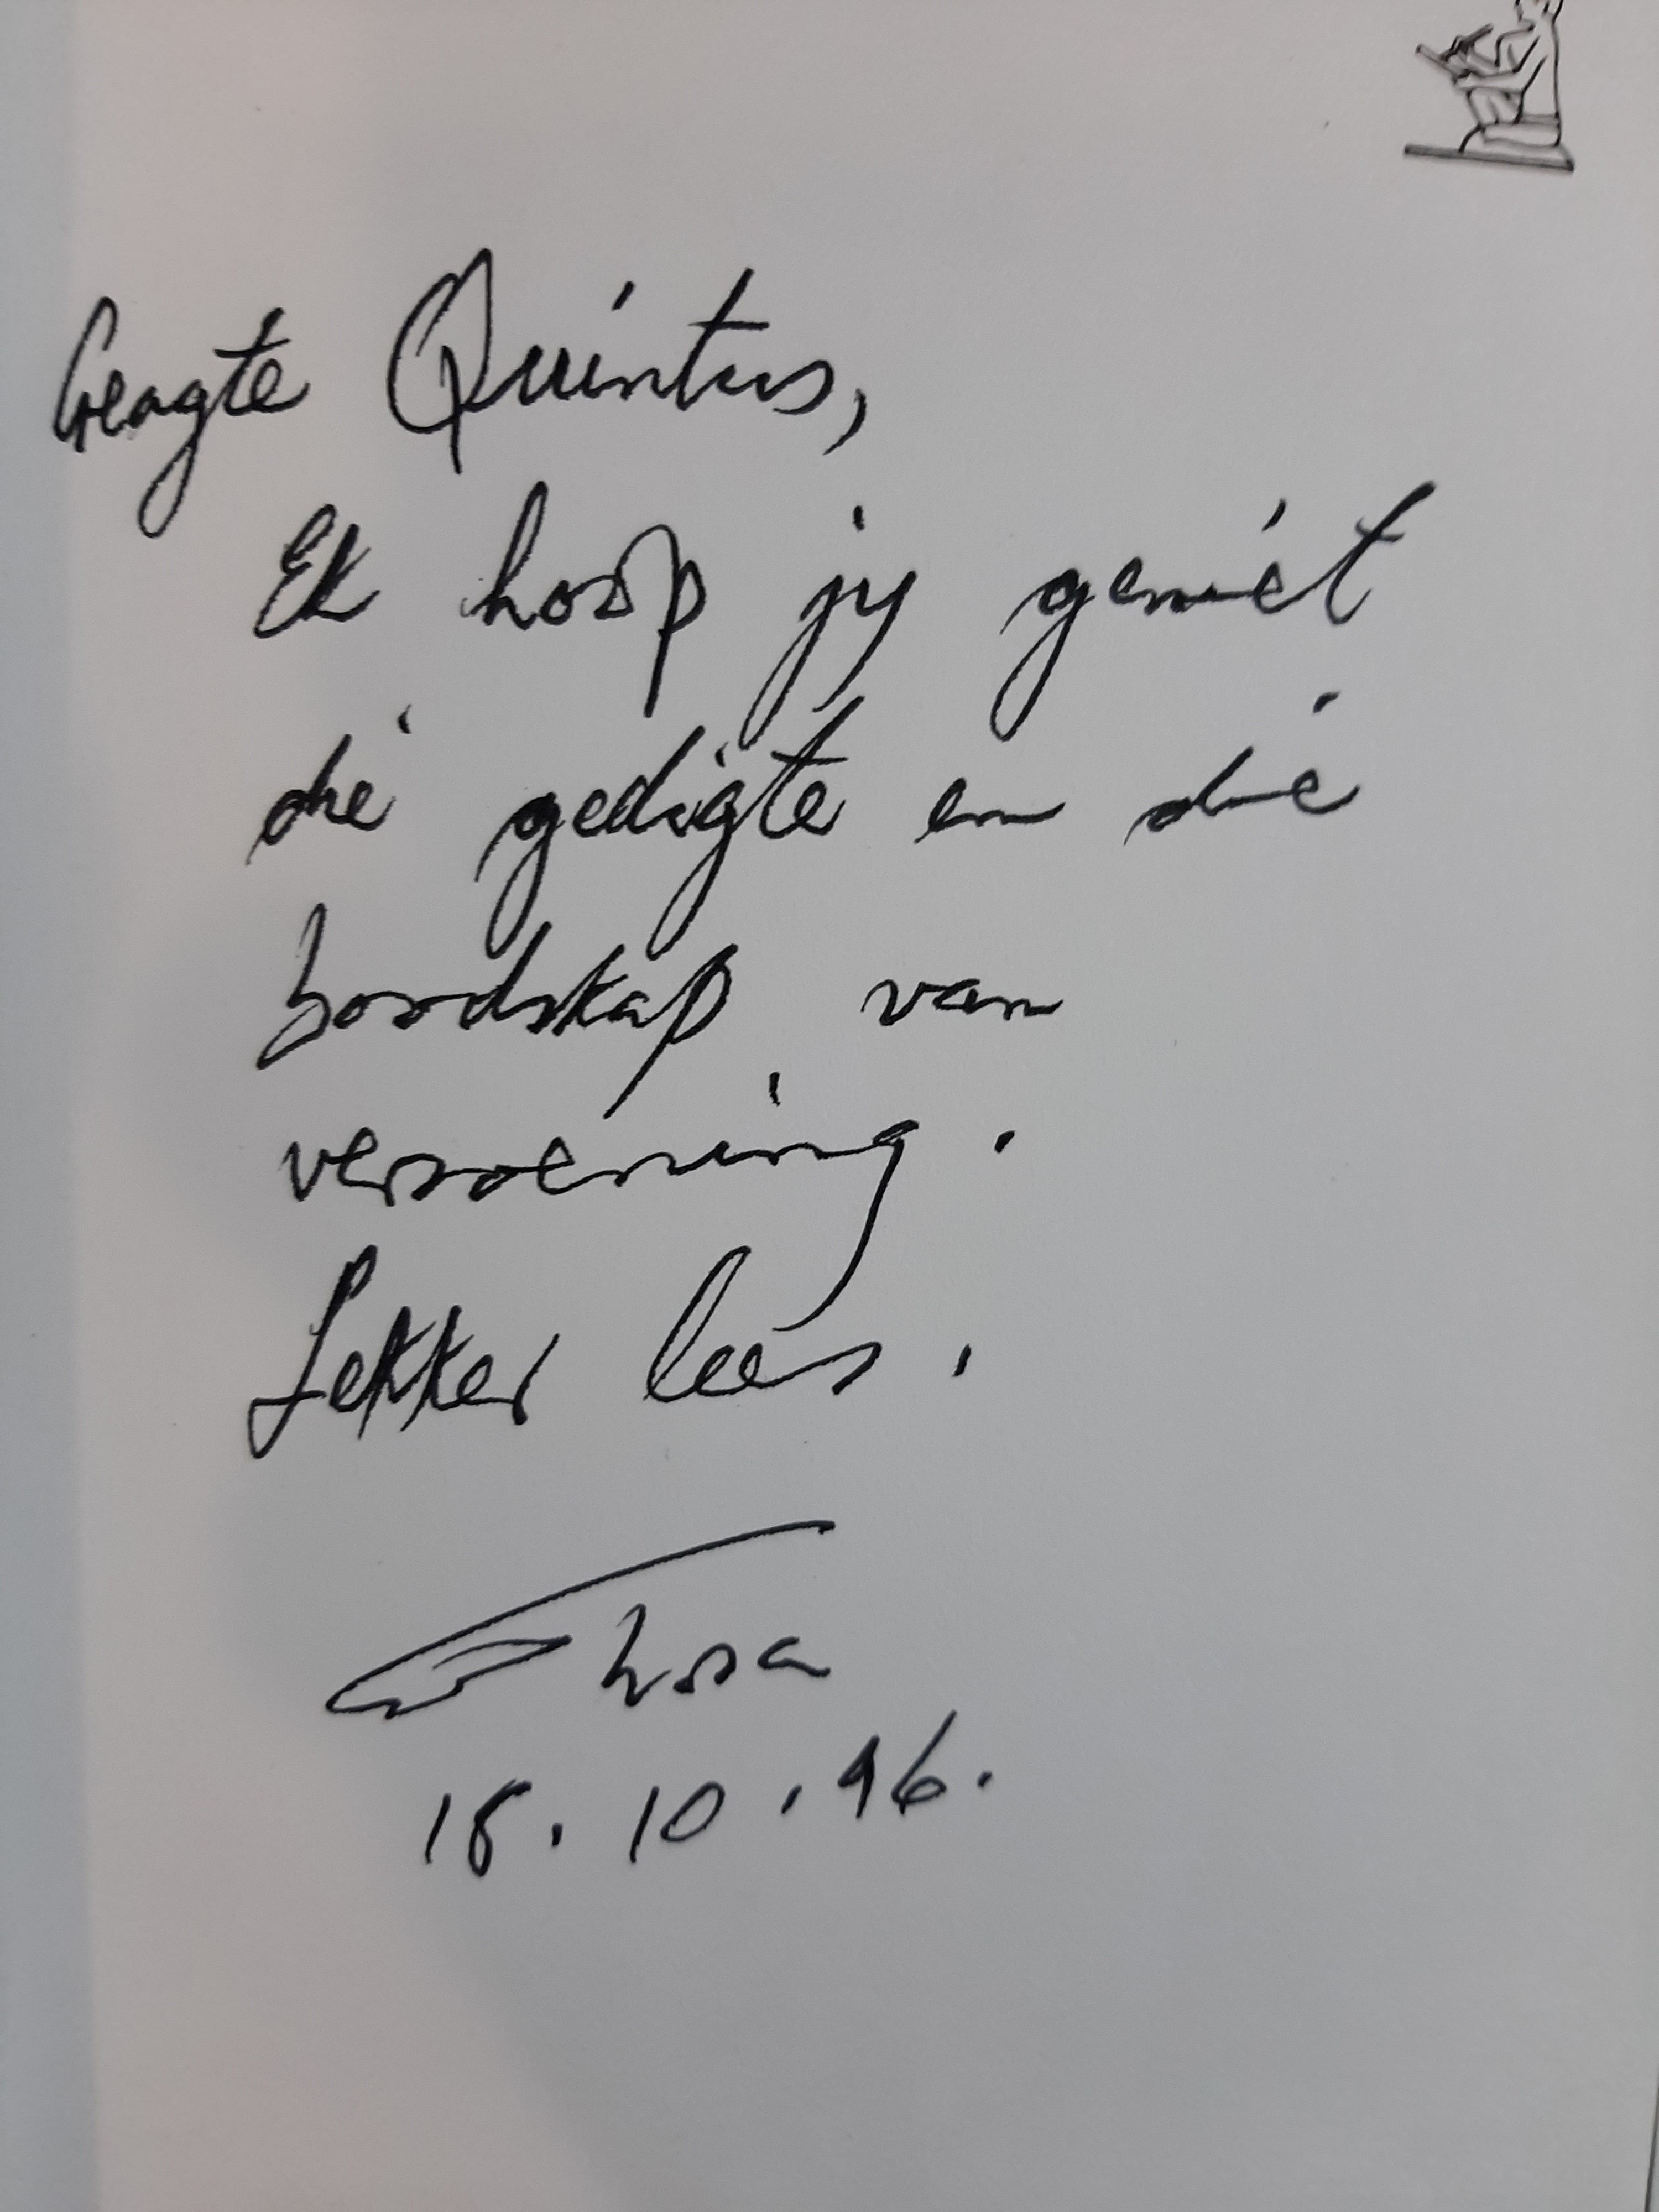 Geagte Quintus,
Ek hoop jy geniet
die gedigte en die
boodskap van
versoening.
Lekker lees.
18.10.96.